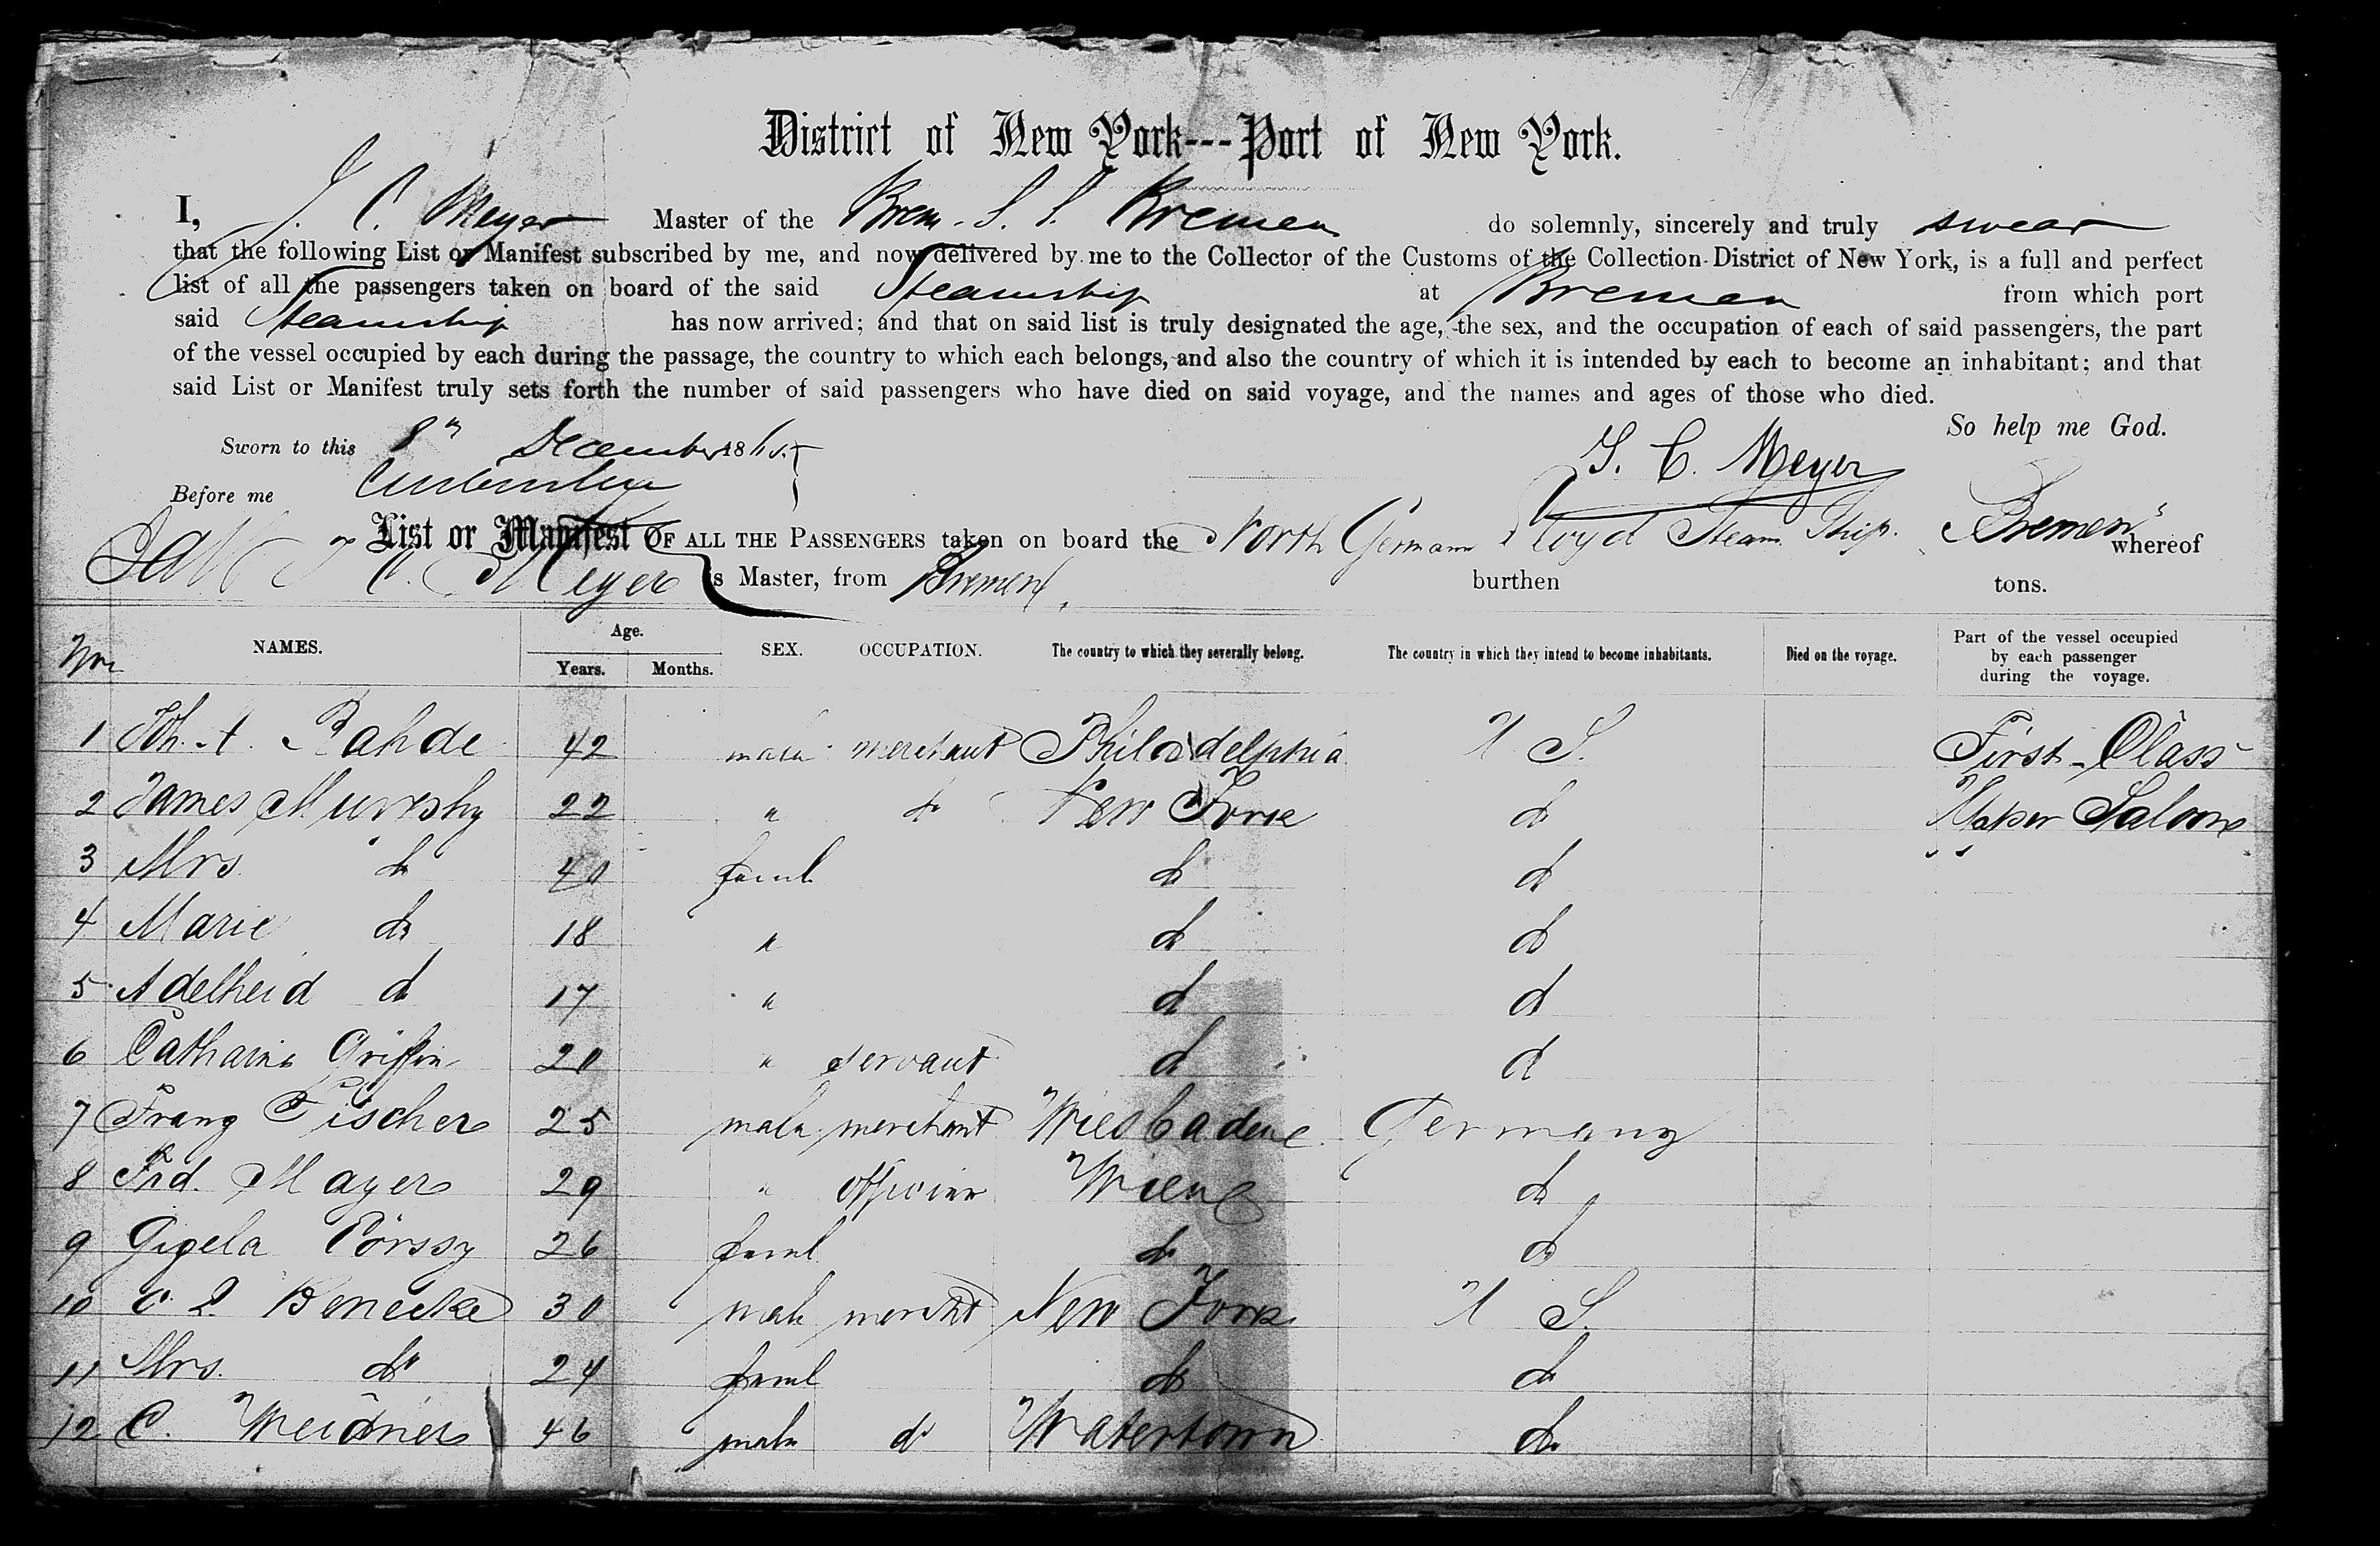 District of New York---Port of New York.
I, J. C. Meyer Master of the Brem. S. S. Bremen do solemnly, sincerely and truly swear
that the following List or Manifest subscribed by me, and now delivered by me to the Collector of the Customs of the Collection District of New York, is a full and perfect
list of all the passengers taken on board of the said Steamship at Bremen from which port
said Steamship has now arrived; and that on said list is truly designated the age, the sex, and the occupation of each of said passengers, the part
of the vessel occupied by each during the passage, the country to which each belongs, and also the country of which it is intended by each to become an inhabitant; and that
said List or Manifest truly sets forth the number of said passengers who have died on said voyage, and the names and ages of those who died.
So help me God.
Sworn to this 8th December 1865
J. C. Meyer
Before me
List or Manifest OF ALL THE PASSENGERS taken on board the North German Lloyd Steam Ship. "Bremen" whereof
C. Meyer is Master, from Bremen, burthen tons.
Nro NAMES. Age. Years. Months. SEX. OCCUPATION. The country to which they severally belong. The country in which they intend to become inhabitants. Died on the voyage. Part of the vessel occupied by each passenger during the voyage.
1 Joh. A. Rahde 42 male merchant Philadelphia U S. First-Class
2 James Murphy 22 " do New York do Upper Saloon
3 Mrs. do 40 feml do do " "
4 Marie do 18 " do do
5 Adelheid do 17 " do do
6 Catharina Griffin 20 " servant do do
7 Franz Fischer 25 male merchant Wiesbaden Germany
8 Frd. Mayer 29 " officier Wien do
9 Gigela 26 feml do do
10 C. L. Benecke 30 male mercht New York U S.
11 Mrs. do 24 feml do do
12 C. Weidner 46 male do Watertown do